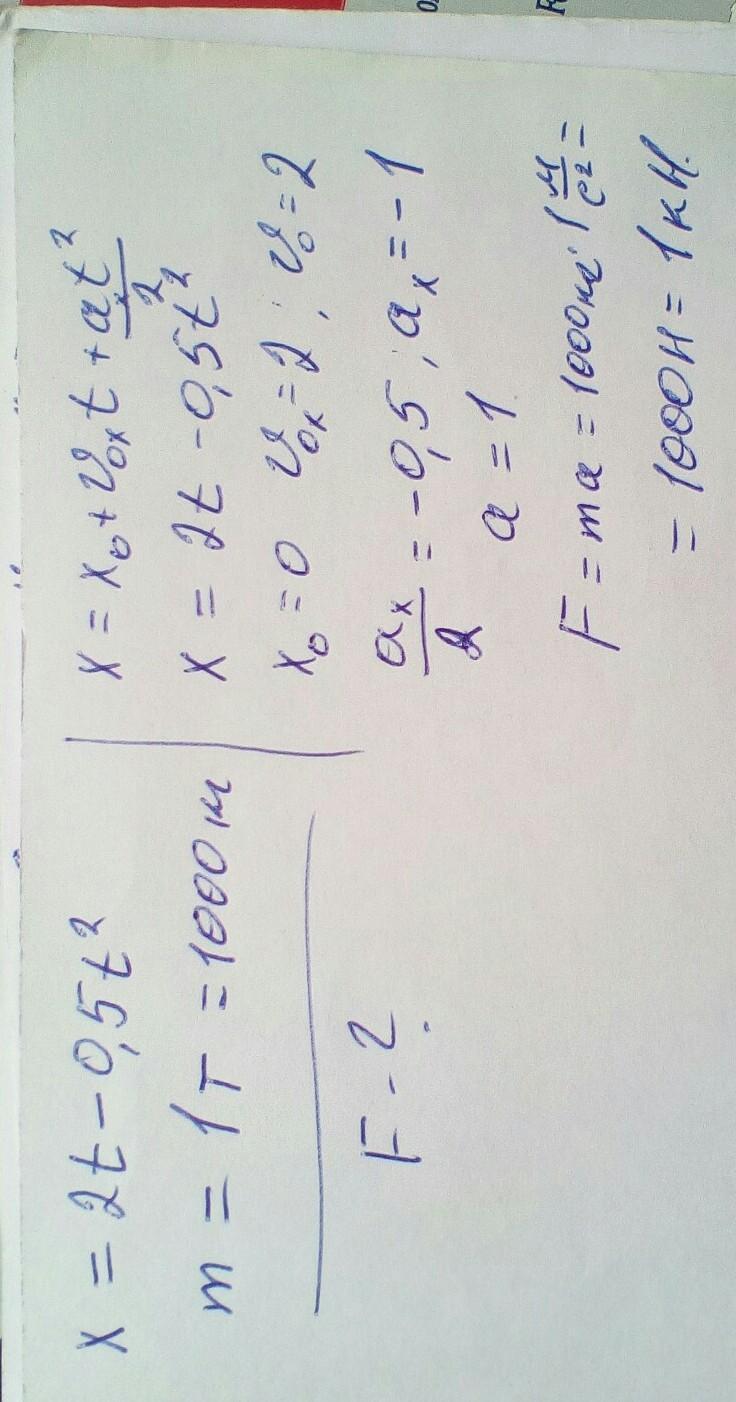 x = 2t - 0,5t²
m = 1т = 1000 кг
F - ?
x = x₀ + v₀ₓt + aₓt²/2
x = 2t - 0,5t²
x₀ = 0 v₀ₓ = 2; v₀ = 2
aₓ/2 = -0,5; aₓ = -1
a = 1
F = ma = 1000кг · 1 м/с² =
= 1000Н = 1кН.